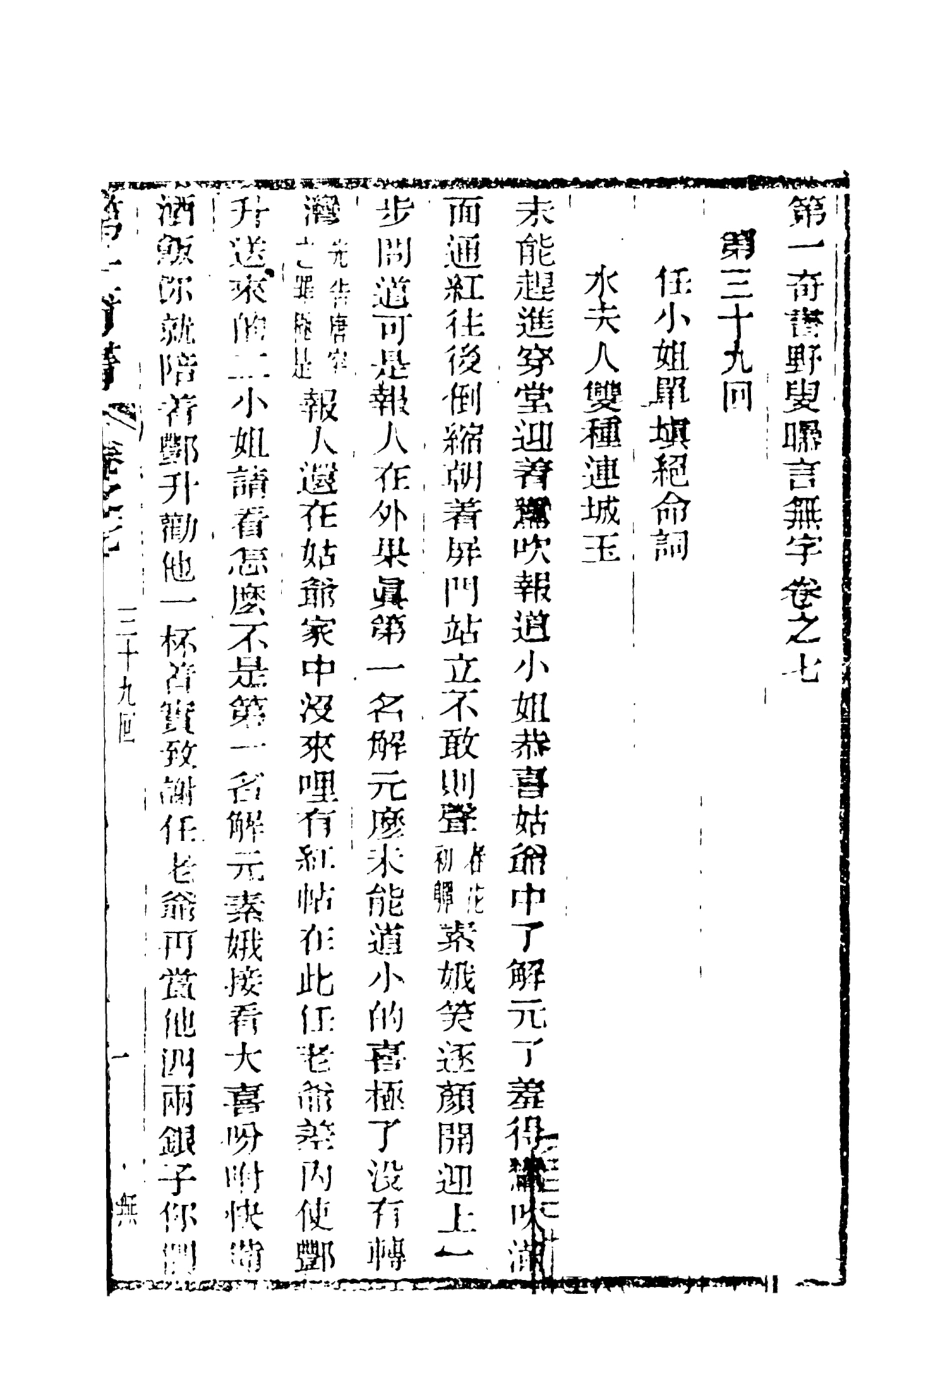 第一奇書野叟曝言無字卷之七
第三十九回
任小姐單塡絕命詞
水夫人雙種連城玉
未能趕進穿堂迎着鸞吹報道小姐恭喜姑爺中了解元了羞得鸞吹滿
面通紅往後倒縮朝着屏門站立不敢則聲春花初嬋素娥笑逐顏開迎上一
步問道可是報人在外果眞第一名解元麽未能道小的喜極了没有轉
灣先告唐突之罪極是報人還在姑爺家中沒來哩有紅帖在此任老爺差內使酆
升送來的二小姐請看怎麽不是第一名解元素娥接看大喜吩咐快備
酒飯你就陪着酆升勸他一杯着實致謝任老爺再賞他四兩銀子你們
第一奇書
卷之七
三十九回
一
無